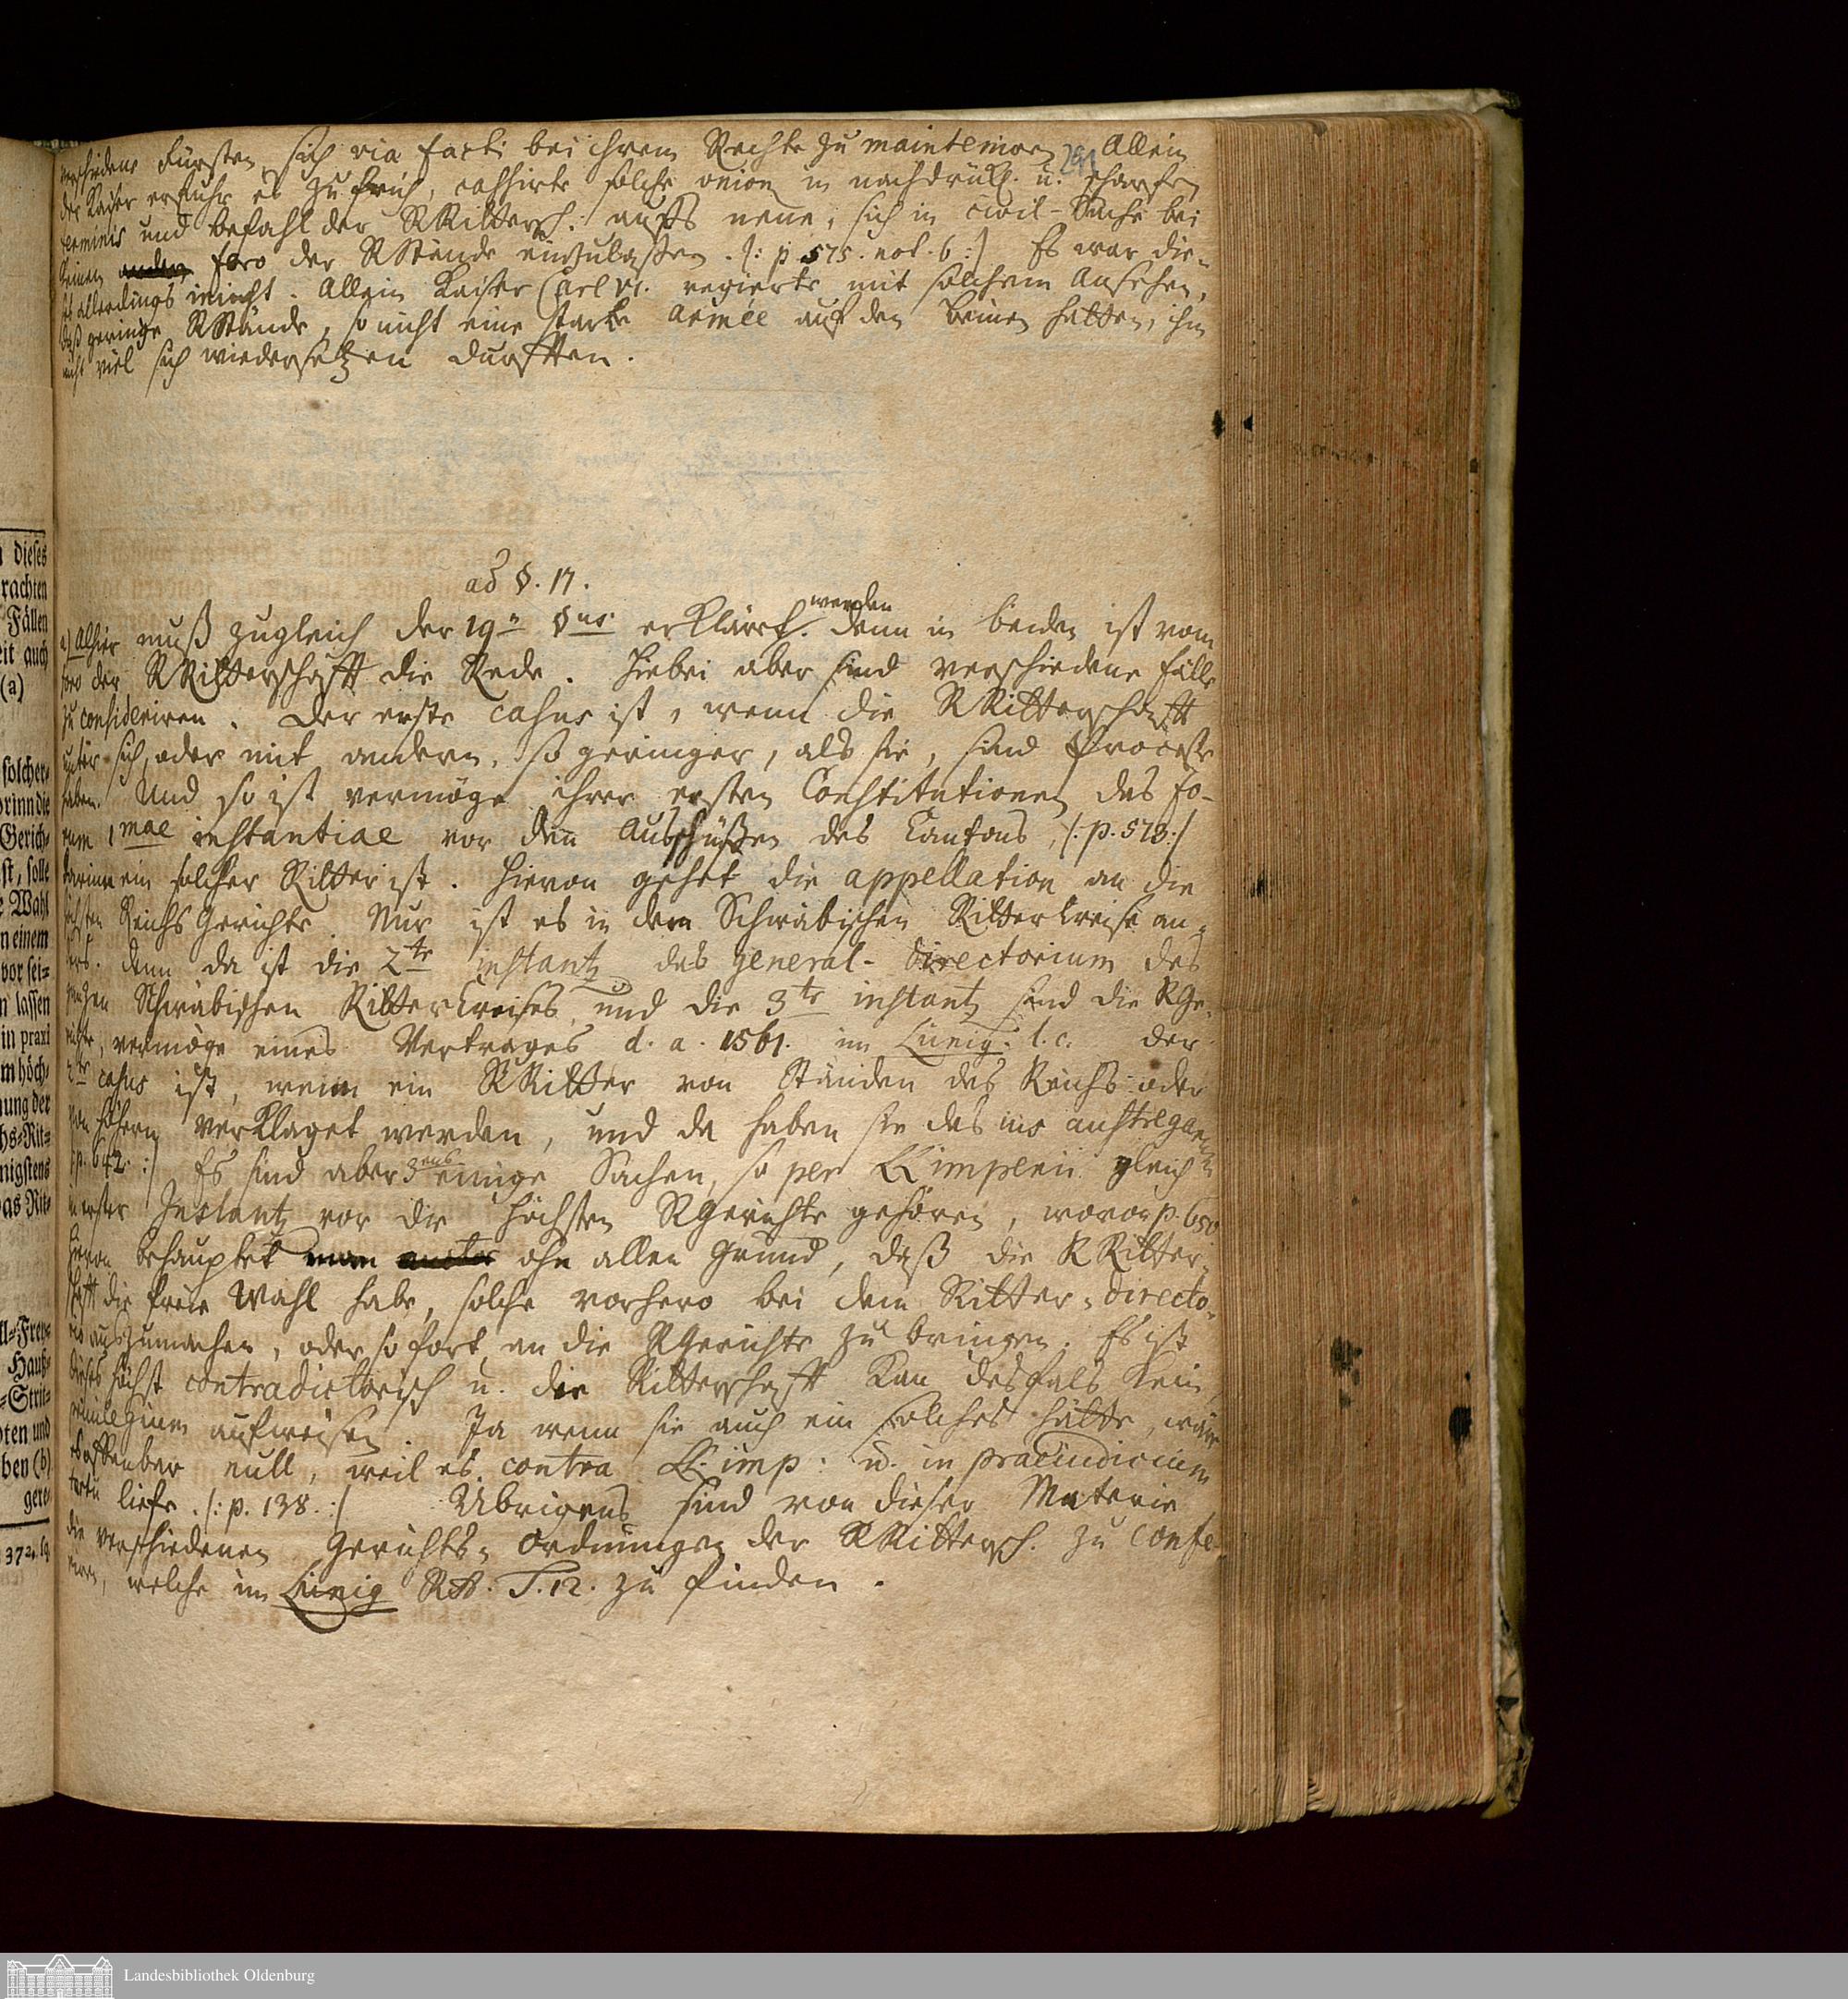 verschiedene Fürsten, sich via facti bei ihrem Rechte zu mainteniren. Allein
291
der Kaiser erfuhr es zu früh, cassirte solche union in nachdrückl. u. scharfen
terminis und befahl der RRittersch: aufs neue, sich in civil-Sache bei
keinem foro der RStände einzulaßen. /: p 575. not. b :/ Es war die-
ß allerdings nicht. Allein Kaiser Carl VI. regierte mit solchem Ansehen,
daß geringe RStände, so nicht eine starke armée auf den Beinen hatten, ihm
nicht viel sich wiedersetzen durfften.
ad §. 17.
a) Alhier muß zugleich der 19n §us erklärt werden. denn in beiden ist vom
foro der RRitterschafft die Rede. Hiebei aber sind verschiedene Fälle
zu consideriren. Der erste casus ist, wenn die RRitterschafft
unter sich, oder mit andern, so geringer, als sie, sind Processe
haben. Und so ist vermöge ihrer ersten Constitutionen das fo-
rum 1mae instantiae vor den Ausschüßen des Cantons, /: p. 573 :/
darinn ein solcher Ritter ist. Hievon gehet die appellation an die
höchsten Reichs Gerichte. Nur ist es in dem Schwäbischen Ritter Kreise an-
ders. denn da ist die 2te instantz das general-Directorium des
gantzen Schwäbischen Ritter Kreises, und die 3te instantz sind die RGe-
richte, vermöge eines Vertrages d. a. 1561. im Lünig. l. c. der
2te casus ist, wenn ein RRitter von Ständen des Reichs oder
von höhern verklaget werden, und da haben sie das ius austregarum
/: p. 642. :/ Es sind aber 3ens einige Sachen, so per LL imperii gleich in
erster Instantz vor die höchsten RGerichte gehören, wovon p. 650
Hievon behauptet man ohn allen Grund, daß die RRitter-
schafft die freie Wahl habe, solche vorhero bei dem Ritter-directo-
rio auszumachen, oder sofort an die RGerichte zu bringen. Es ist
dieses höchst contradictorisch u. die Ritterschafft kan desfals kein
privilegium aufweisen. Ja wenn sie auch ein solches hätte, wäre
es offenbar null, weil es contra LL. imp: u. in praeiudicium
tertii liefe. /: p. 138. :/ Ubrigens sind von dieser Materie
die verschiedenen Gerichts-Ordnungen der RRittersch. zu confe-
riren, welche im Lünig RA. T. 12. zu finden.
dieses
rachten
Fällen
eit auch
(a)
solcher-
orinn die
Gerich-
st, solle
e Wahl
n einem
vor sei-
n lassen
in praxi
m höch-
nung der
hs-Rit-
nigstens
as Rit-
ll-Frey-
Hauß-
-Strit-
ten und
ben (b)
gere-
372. sq
Landesbibliothek Oldenburg